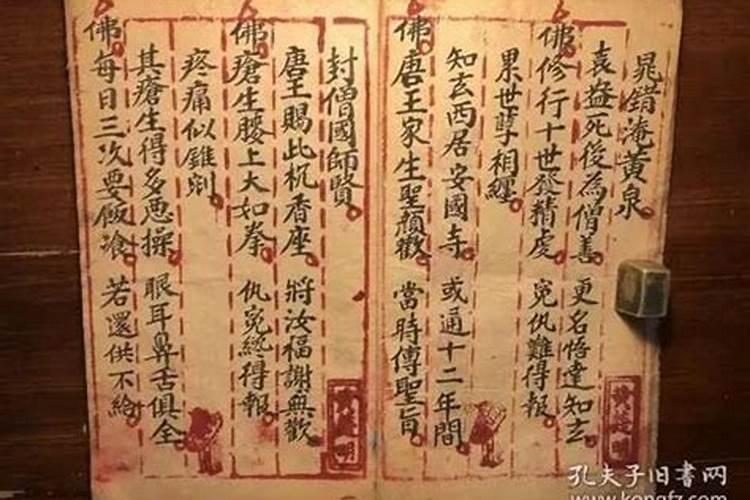 晁錯淹黃泉
袁盎死後為僧善 更名悟達知玄
佛修行十世發精虔 冤仇難得報
累世孽相纏
知玄西居安國寺 或通十二年間
佛唐王家生聖顏歡 當時傳聖旨
封僧國師賢
唐王賜此机香座 將汝福謝無歡
佛瘡生腰上大如拳 仇冤總得報
疼痛似錐剜
其瘡生得多悪操 眼耳鼻舌俱全
佛每日三次要飯飡 若還供不給
孔夫子旧书网